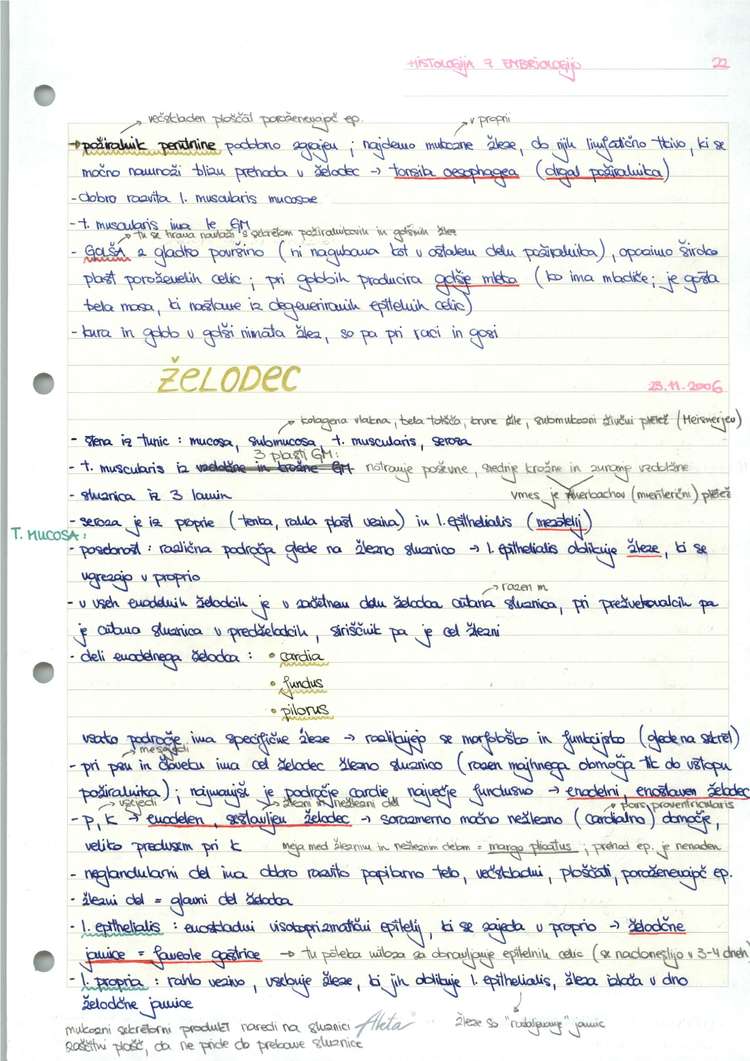 HISTOLOGIJA 7 EMBRIOLOGIJO 22
večskladen ploščat poroženevajoč ep. v propri
→ požiralnik perutnine podobno zgrajen ; najdemo mukozne žleze, ob njih limfatično tkivo, ki se
močno namnoži blizu prehoda v želodec → tonsila oesophagea (čigal požiralnika)
- dobro razvita l. muscularis mucosae
- t. muscularis ima le GM
→ tu se hrana navlaži s sekretom požiralnikovih in golšnih žlez
- GOLŠA z gladko površino (ni nagubana kot v ostalem delu požiralnika), opazimo široko
plast poroženelih celic ; pri golobih producira golšje mleko (ko ima mladiče ; je gosta
bela masa, ki nastane iz degeneriranih epitelnih celic)
- kura in golob v golši nimata žlez, so pa pri raci in gosi
ŽELODEC 23.11.2006
kolagena vlakna, bela tolšča, krvne žile, submukozni živčni pletež (Meisnerjev)
- stena iz tunic : mucosa, submucosa, t. muscularis, seroza
3 plasti GM:
- t. muscularis iz vzdolžne in krožne GM notranje poševne, srednje krožne in zunanje vzdolžne
- sluznica iz 3 lamin vmes je Auerbachov (mienterični) pletež
- seroza je iz proprie (tenka, rahla plast veziva) in l. epithelialis (mezotelij)
T. MUCOSA:
- posebnost : različna področja glede na žlezno sluznico → l. epithelialis oblikuje žleze, ki se
ugrezajo v proprio
→ razen m.
- v vseh enodelnih želodcih je v začetnem delu želodca kutana sluznica, pri prežvekovalcih pa
je kutana sluznica v predželodcih, siriščnik pa je cel žlezni
- deli enodelnega želodca : • cardia
• fundus
• pilorus
vsako področje ima specifične žleze → razlikujejo se morfološko in funkcijsko (glede na sekret)
mesojedi
- pri psu in človeku ima cel želodec žlezno sluznico (razen majhnega območja tik ob vstopu
požiralnika) ; najmanjše je področje cardie, največje fundusno → enodelni, enostaven želodec
vsejedi žlezni in nežlezni del pars proventricularis
- P, K → enodelen, sestavljen želodec → sorazmerno močno nežlezno (cardialno) območje,
veliko predvsem pri K meja med žleznim in nežleznim delom = margo plicatus ; prehod ep. je nenaden
- neglandularni del ima dobro razvito papilarno telo, večskladni, ploščati, poroženevajoč ep.
- žlezni del = glavni del želodca
- l. epithelialis : enoskladni visokoprizmatični epitelij, ki se zajeda v proprio → želodčne
jamice = foveole gastrice → tu poteka mitoza za obnavljanje epitelnih celic (se nadomestijo v 3-4 dneh)
- l. propria : rahlo vezivo, vsebuje žleze, ki jih oblikuje l. epithelialis, žleza izloča v dno
želodčne jamice
žleze so "nadaljevanje" jamic
mukozni sekretorni produkt naredi na sluznici
zaščitni plašč, da ne pride do prebave sluznice